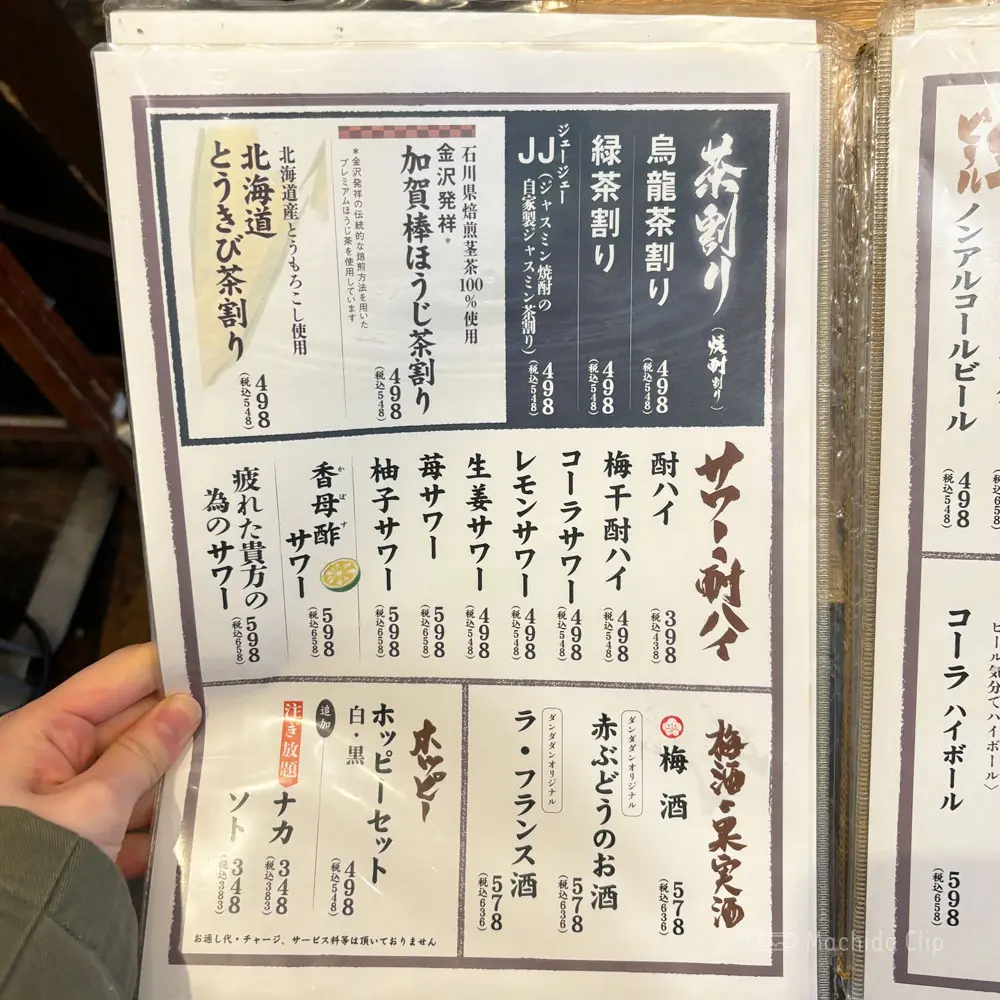 茶割り
(焼酎割り)
烏龍茶割り
498
(税込548)
緑茶割り
498
(税込548)
ジェージェー
JJ
(ジャスミン焼酎の
自家製ジャスミン茶割り)
498
(税込548)
石川県焙煎茎茶100%使用
金沢発祥*
加賀棒ほうじ茶割り
498
(税込548)
*金沢発祥の伝統的な焙煎方法を用いた
プレミアムほうじ茶を使用しています
北海道産とうもろこし使用
北海道
とうきび茶割り
498
(税込548)
サワー・酎ハイ
酎ハイ
398
(税込438)
梅干酎ハイ
498
(税込548)
コーラサワー
498
(税込548)
レモンサワー
498
(税込548)
生姜サワー
498
(税込548)
苺サワー
598
(税込658)
柚子サワー
598
(税込658)
かぼす
香母酢
サワー
598
(税込658)
疲れた貴方の
為のサワー
598
(税込658)
梅酒・果実酒
梅酒
578
(税込636)
ダンダダンオリジナル
赤ぶどうのお酒
578
(税込636)
ダンダダンオリジナル
ラ・フランス酒
578
(税込636)
ホッピー
ホッピーセット
白・黒
498
(税込548)
追加
注ぎ放題
ナカ
348
(税込383)
ソト
348
(税込383)
お通し代・チャージ、サービス料等は頂いておりません
ビール
(税込658)
ノンアルコールビール
498
(税込548)
ビール気分でハイボール〉
コーラハイボール
598
(税込658)
Machida Clip